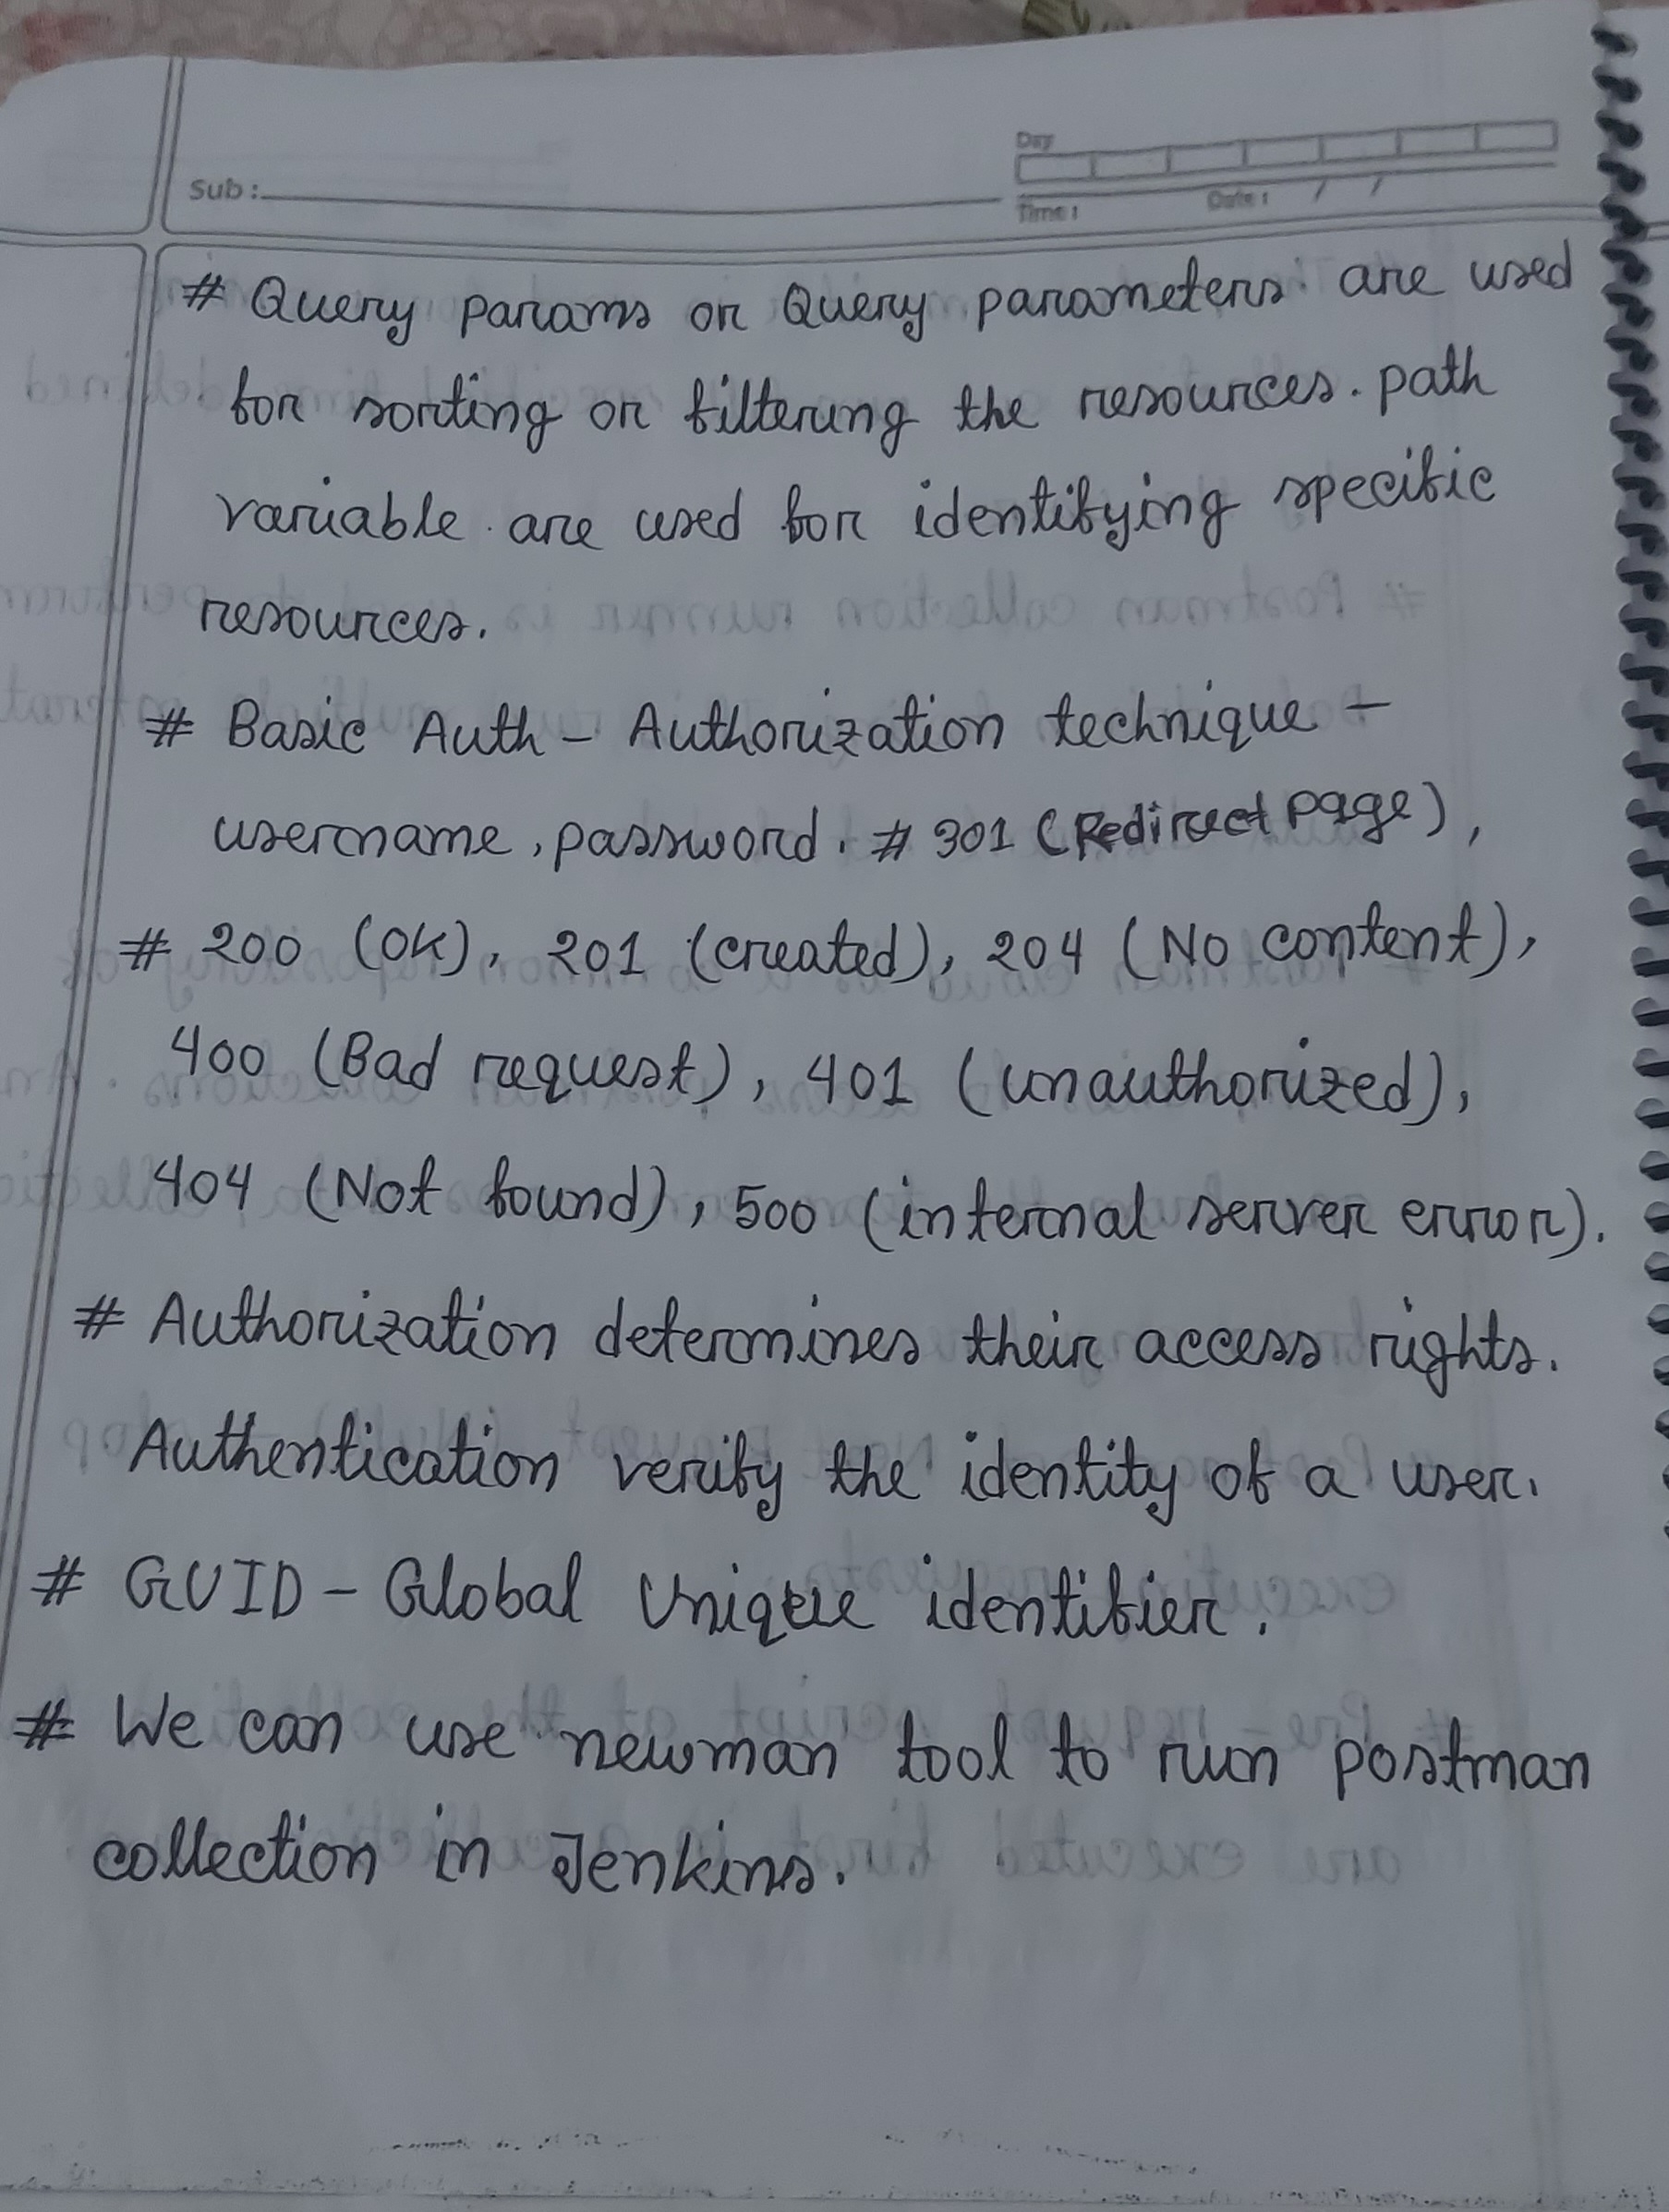 Day
Sub :
Time :
Date : / /
# Query params or Query parameters are used
for sorting or filtering the resources. path
variable are used for identifying specific
resources.
# Basic Auth - Authorization technique -
username, password. # 301 (Redirect page),
# 200 (OK), 201 (created), 204 (No content),
400 (Bad request), 401 (unauthorized),
404 (Not found), 500 (internal server error).
# Authorization determines their access rights.
Authentication verify the identity of a user.
# GUID - Global Unique identifier.
# We can use newman tool to run postman
collection in Jenkins.